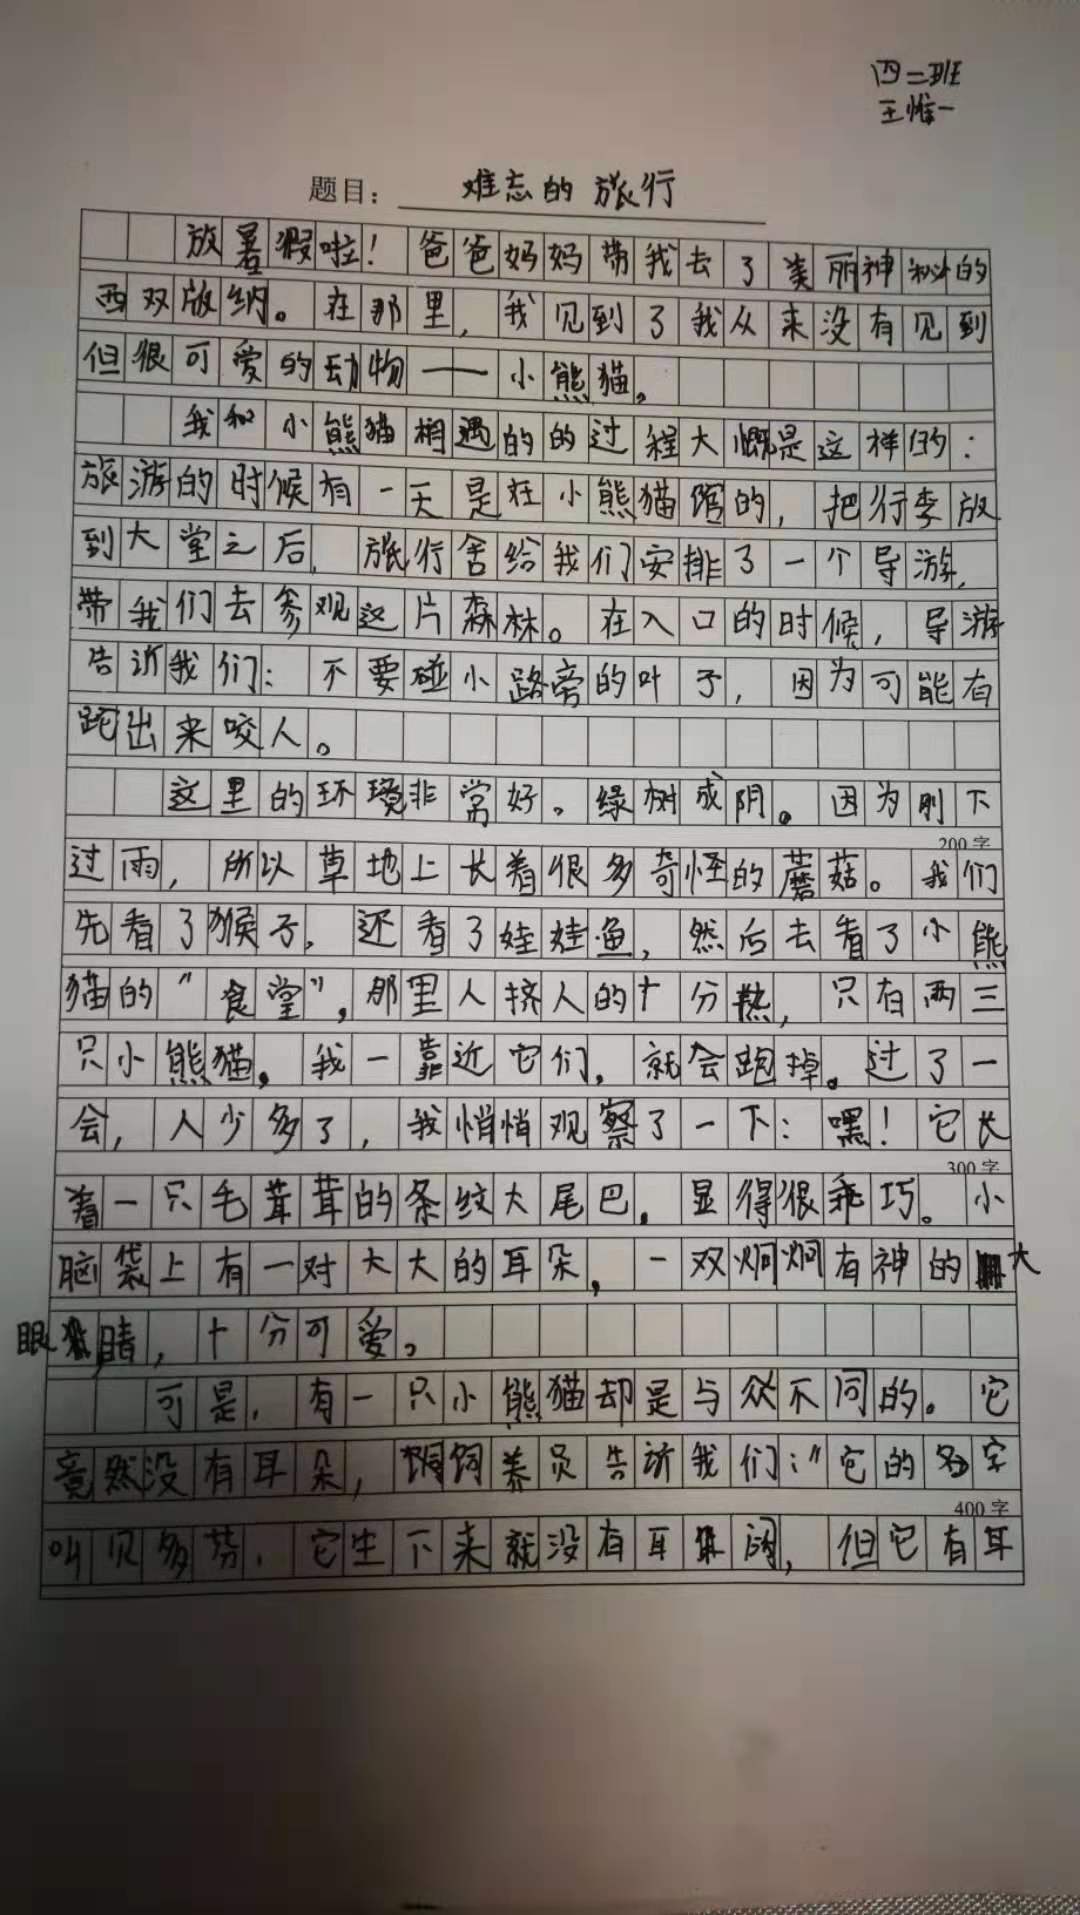 四二班
王惟一
题目：难忘的旅行
放暑假啦！爸爸妈妈带我去了美丽神秘的
西双版纳。在那里，我见到了我从来没有见到
但很可爱的动物——小熊猫。
我和小熊猫相遇的的过程大慨是这样的：
旅游的时候有一天是在小熊猫馆的，把行李放
到大堂之后，旅行舍给我们安排了一个导游，
带我们去参观这片森林。在入口的时候，导游
告诉我们：不要碰小路旁的叶子，因为可能有
跎出来咬人。
这里的环境非常好。绿树成阴。因为刚下
200字
过雨，所以草地上长着很多奇怪的蘑菇。我们
先看了猴子，还看了娃娃鱼，然后去看了小熊
猫的“食堂”，那里人挤人的十分热，只有两三
只小熊猫。我一靠近它们，就会跑掉。过了一
会，人少多了，我悄悄观察了一下：嘿！它长
300字
着一只毛茸茸的条纹大尾巴，显得很乖巧。小
脑袋上有一对大大的耳朵，一双炯炯有神的大
眼睛，十分可爱。
可是，有一只小熊猫却是与众不同的。它
竟然没有耳朵，饲养员告诉我们：“它的名字
400字
叫贝多芬，它生下来就没有耳朵的，但它有耳